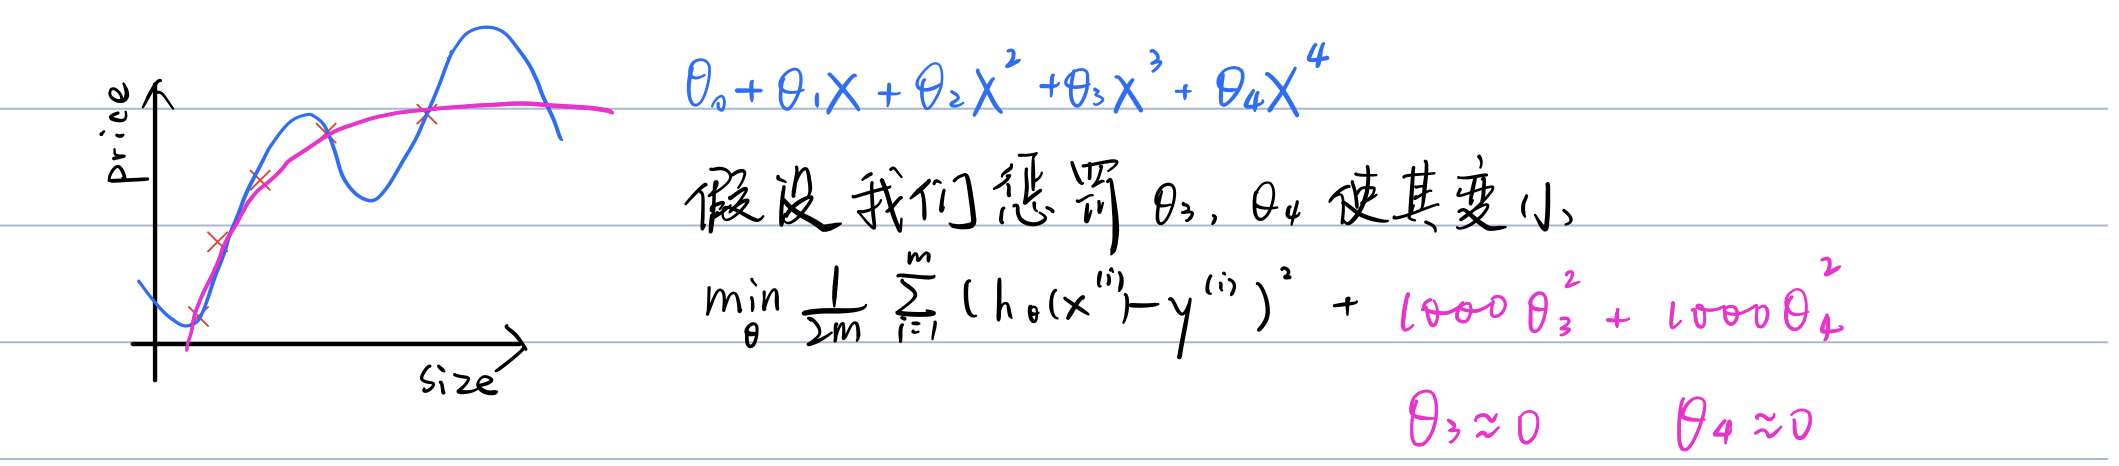 price
size
θ₀ + θ₁x + θ₂x² + θ₃x³ + θ₄x⁴
假设我们惩罚 θ₃, θ₄ 使其变小
min_θ 1/2m Σ_{i=1}^{m} (h_θ(x⁽ⁱ⁾) - y⁽ⁱ⁾)² + 1000θ₃² + 1000θ₄²
θ₃≈0 θ₄≈0